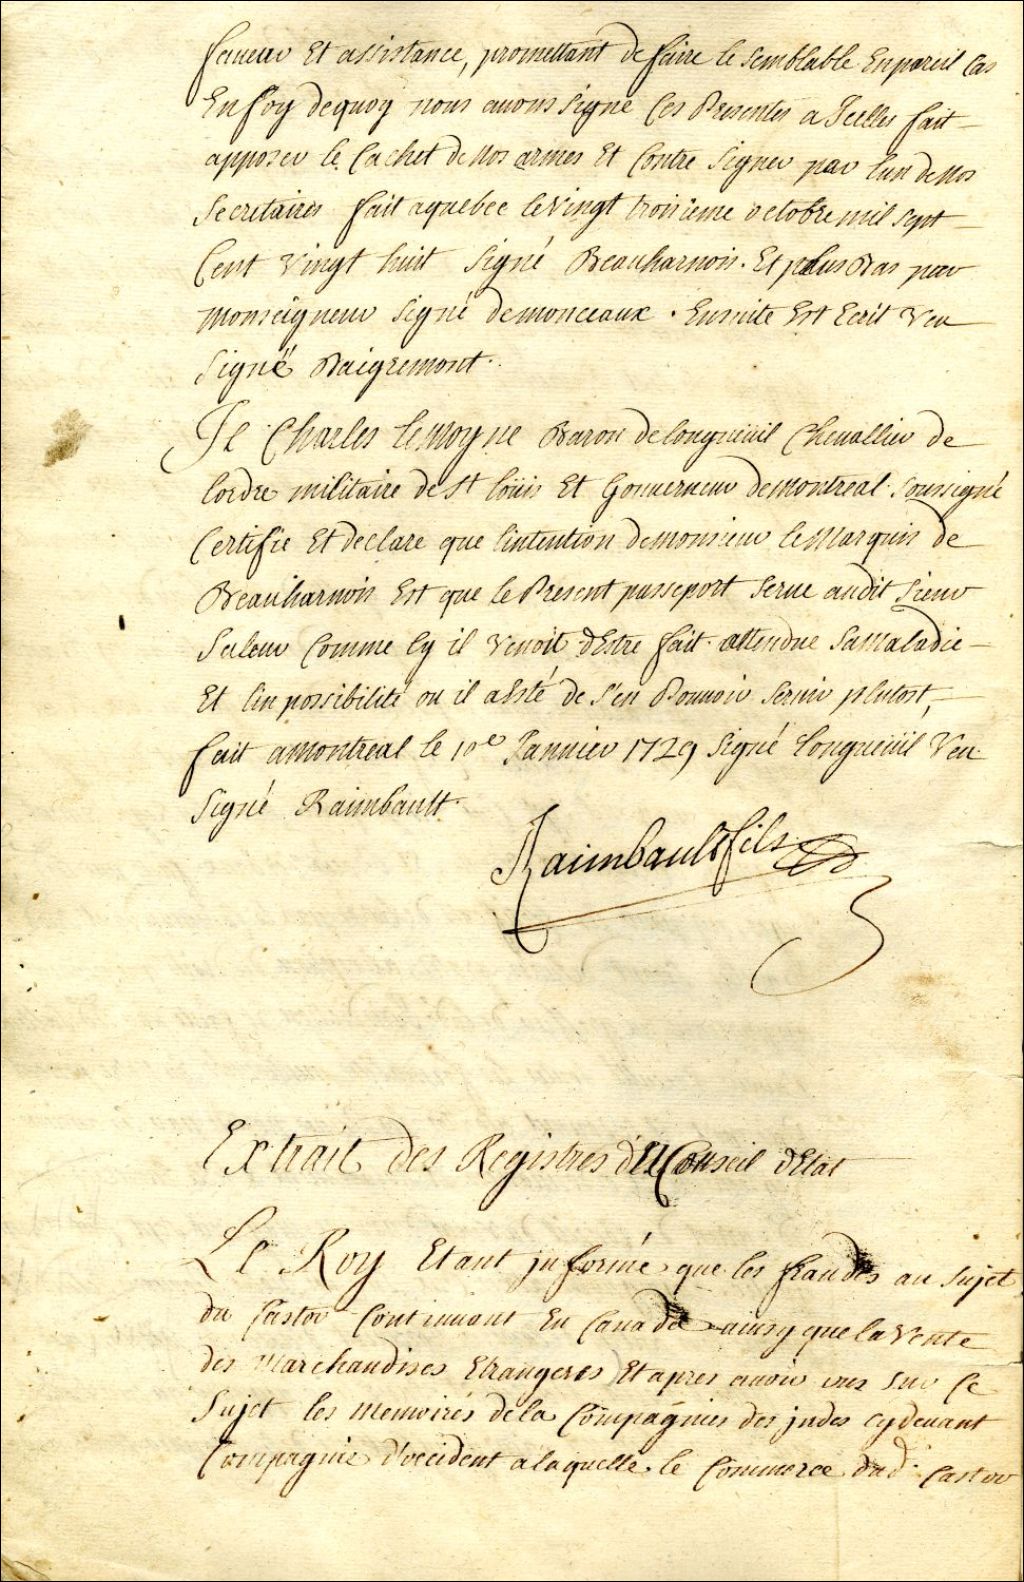 faueur Et assistance, promettant de faire le semblable En pareil Cas
En foy de quoy nous auons Signé Ces Presentes a Icelles fait
apposer le Cachet de Nos armes Et Contre Signer par lun de Nos
Secretaires fait a quebec le Vingt troisieme octobre mil Sept
Cent Vingt huit Signé Beauharnois. Et plus Bas par
Monseigneur Signé demonceaux. Ensuite Est Ecrit Veu
Signé Daigremont.
Je Charles Lemoyne Baron de longueüil Cheuallier de
lordre militaire de St loüis Et Gouuerneur de montreal Soussigné
Certifie Et declare que lintention de monsieur le Marquis de
Beauharnois Est que le Present passeport Serue audit Sieur
Comme Sy il Venoit d'Estre fait attendue Sa Maladie
Et lin possibilité ou il a Esté de s'en Pouuoir Seruir plutost,
fait a Montreal le 10e Januier 1729 Signé Longueüil Veu
Signé Raimbault.
Raimbault fils
Extrait des Registres du Conseil d'Etat
Le Roy Etant jnformé que les fraudes au Sujet
du Castor Continuent En Canada ainsy que la Vente
des Marchandises Etrangeres Et apres auoir vus Sur Ce
Sujet les Memoires de la Compagnies des jndes cy deuant
Compagnie d'occident a laquelle le Commerce dud. Castor